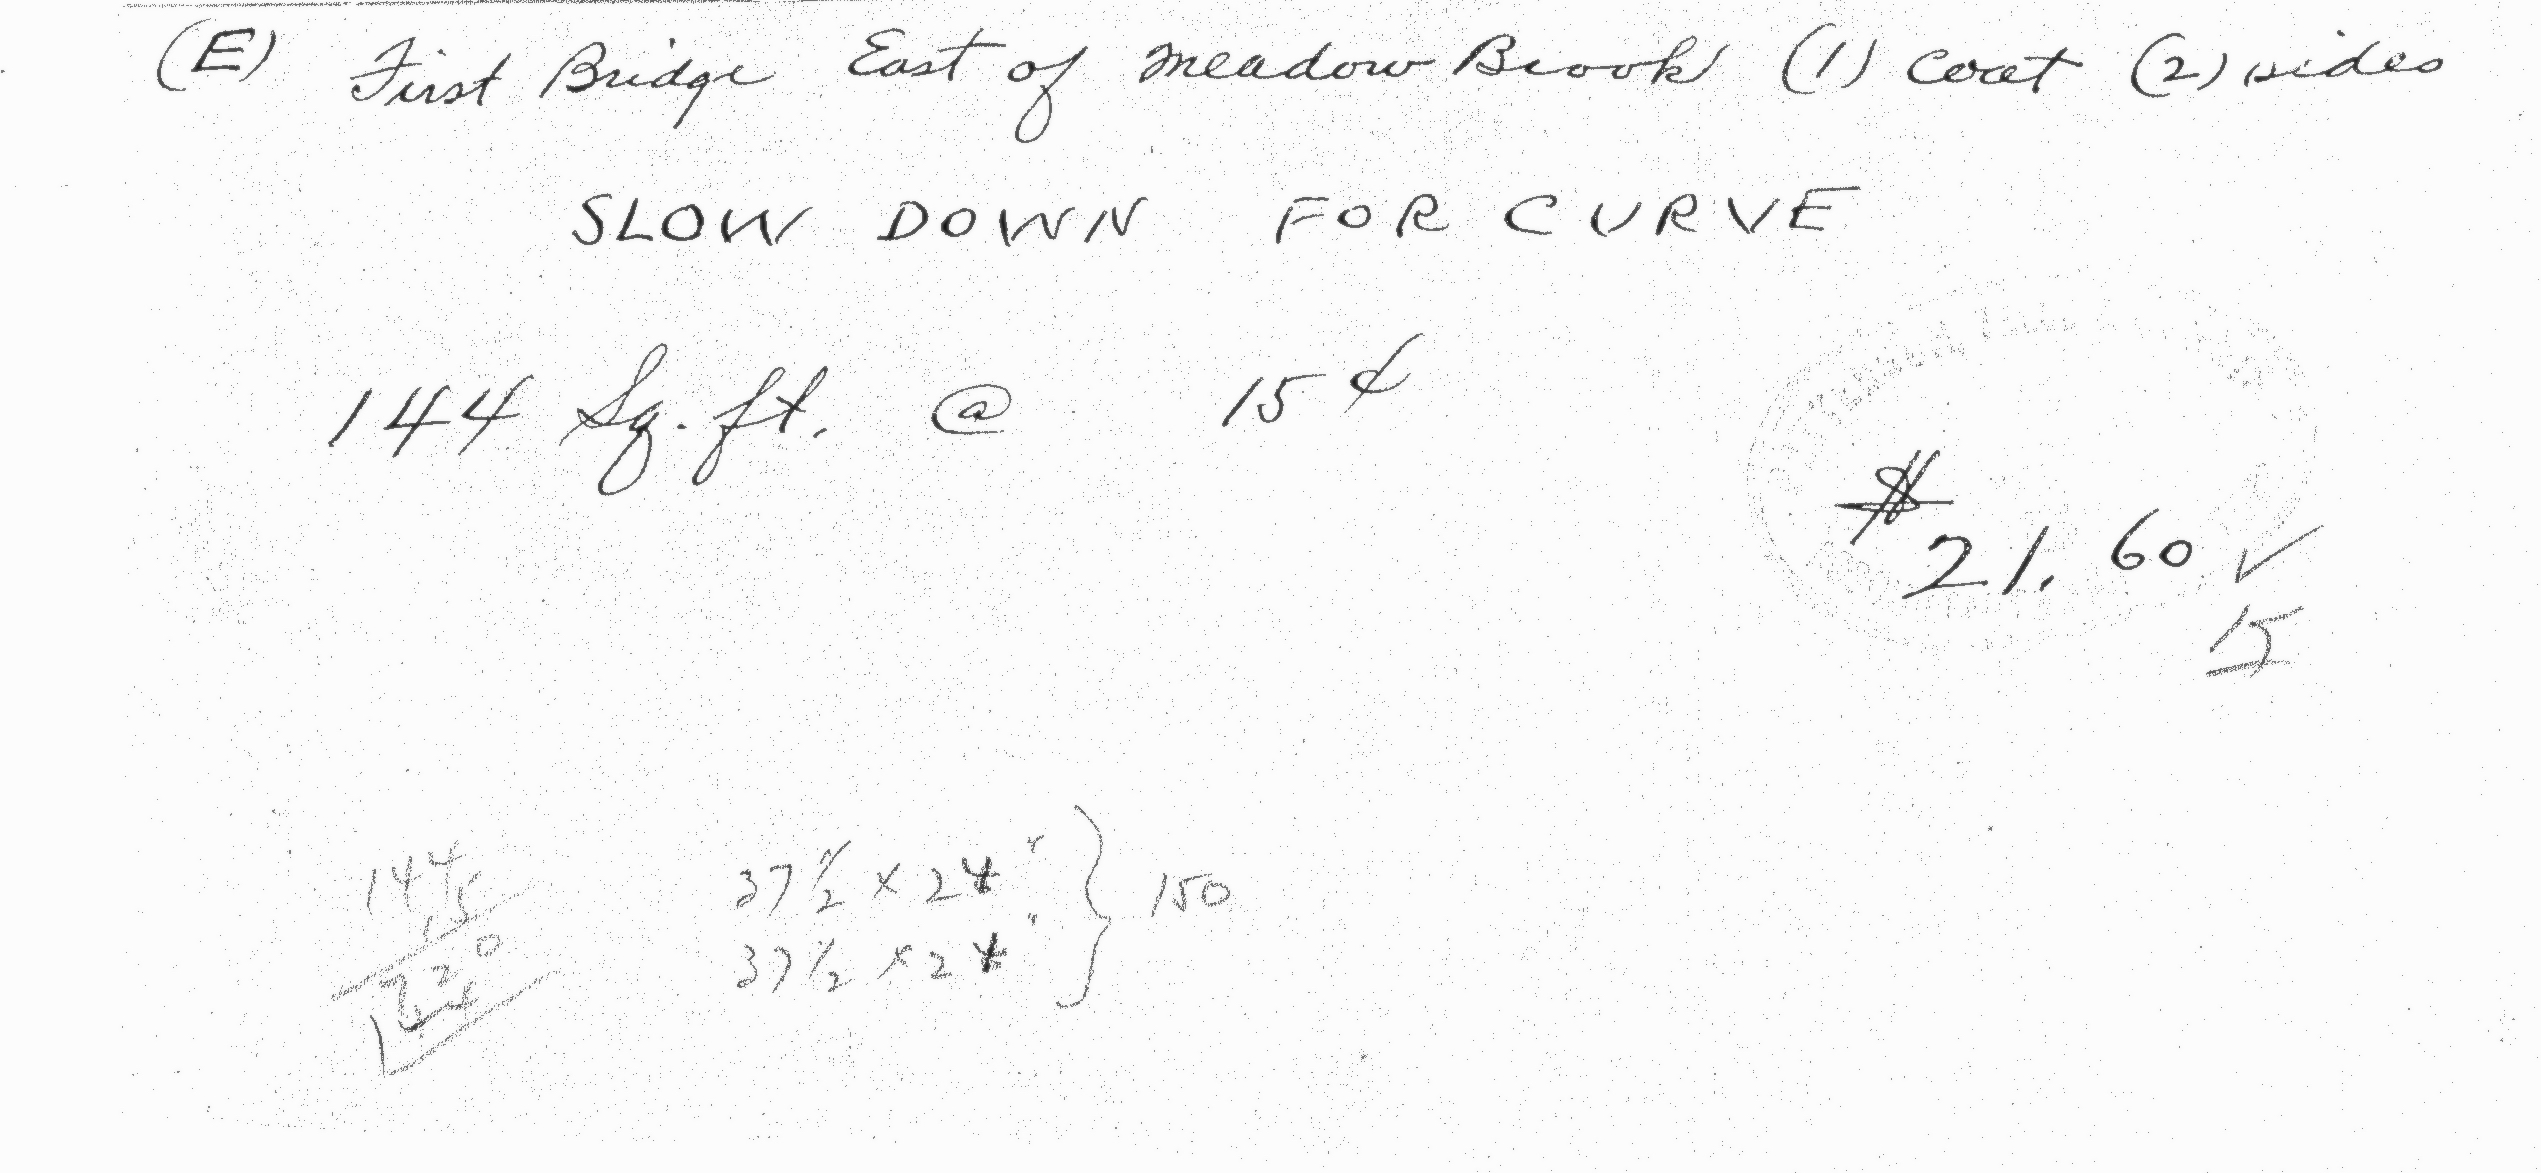 (E) First Bridge East of Meadow Brook (1) Coat (2) sides
SLOW DOWN FOR CURVE
144 Sq. ft. @ 15¢
$21.60 ✓
15
144
15
720
144
37 1/2 x 24" } 150
37 1/2 x 24"